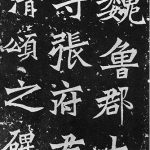 魏魯郡太
守張府君
清頌之碑